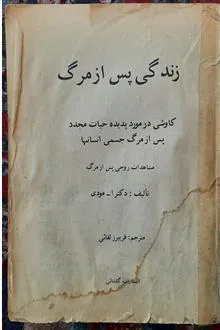 زندگی پس از مرگ
کاوشی در مورد پدیده حیات مجدد
پس از مرگ جسمی انسانها
مشاهدات روحی پس از مرگ
تألیف : دکتر ا - مودی
مترجم: فریبرز لقائی
انتشارات گلفانی